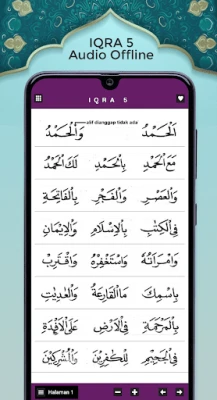 IQRA 5
Audio Offline
IQRA 5
alif dianggap tidak ada
اَلْحَمْدُ وَالْحَمْدُ
مَعَ الْحَمْدِ بِالْحَمْدِ لَكَ الْحَمْدُ
وَالْعَصْرِ وَالْفَجْرِ بِالْفَاتِحَةِ
فِي الْكِتٰبِ بِالْاِسْلَامِ وَالْاِيْمَانِ
وَامْرَاَتُهُ وَاسْتَغْفِرْهُ وَاقْتَرِبْ
بِاسْمِكَ مَاالْقَارِعَةُ وَالْعٰدِيٰتِ
بِالْمَرْحَمَةِ فِي الْاَرْضِ عَلَى الْاَفْـِٕدَةِ
فِي الْجَحِيْمِ لِلْكٰفِرِيْنَ وَالْمُشْرِكِيْنَ
Halaman 1